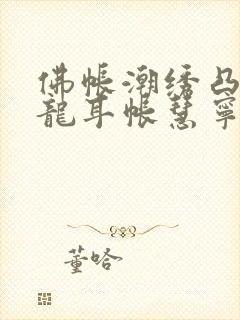 佛帐潮绣凸
龍耳帐慧寧
董哈